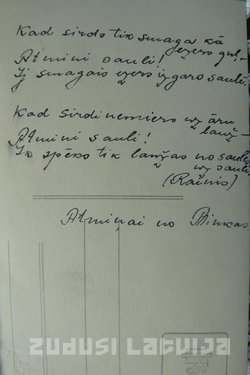 Kad sirds tik smaga kā
ezers guļ,
Atmini sauli!
Tj smagais ezers izgaro saulē.
Kad sirdi nemiers uz āru
lauž
Atmini sauli!
Ik spēks tik laužas no saules
uz sauli
(Rainis)
Atmiņai no Minkas
ZUDUSI LATVIJA